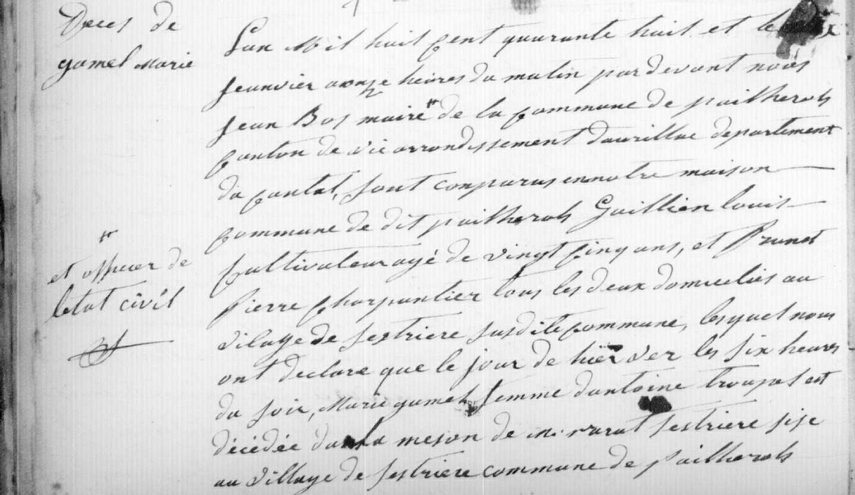 Deces de
gamel Marie
Lan Mil huit Cent quarante huit et le
Jeanvier a onze heures du matin par devant nous
Jean Bos maire de la Commune de pailherols
Canton de vic arrondissement daurillac departement
du Cantal, Sont Conparus en notre maison
Commune de dit pailherols Guillien louis
Cultivateur agé de vingt Cinq ans, et Brunet
Pierre Charpentier tous les deux domicilies au
vilage de festriere susdite Commune, lesquel nous
ont declare que le jour de hier ver les six heures
du soir, Marie gamel femme dantoine troupel est
décédée dans la meson de festriere sise
au village de festriere commune de pailherols
et officier de
letat civil